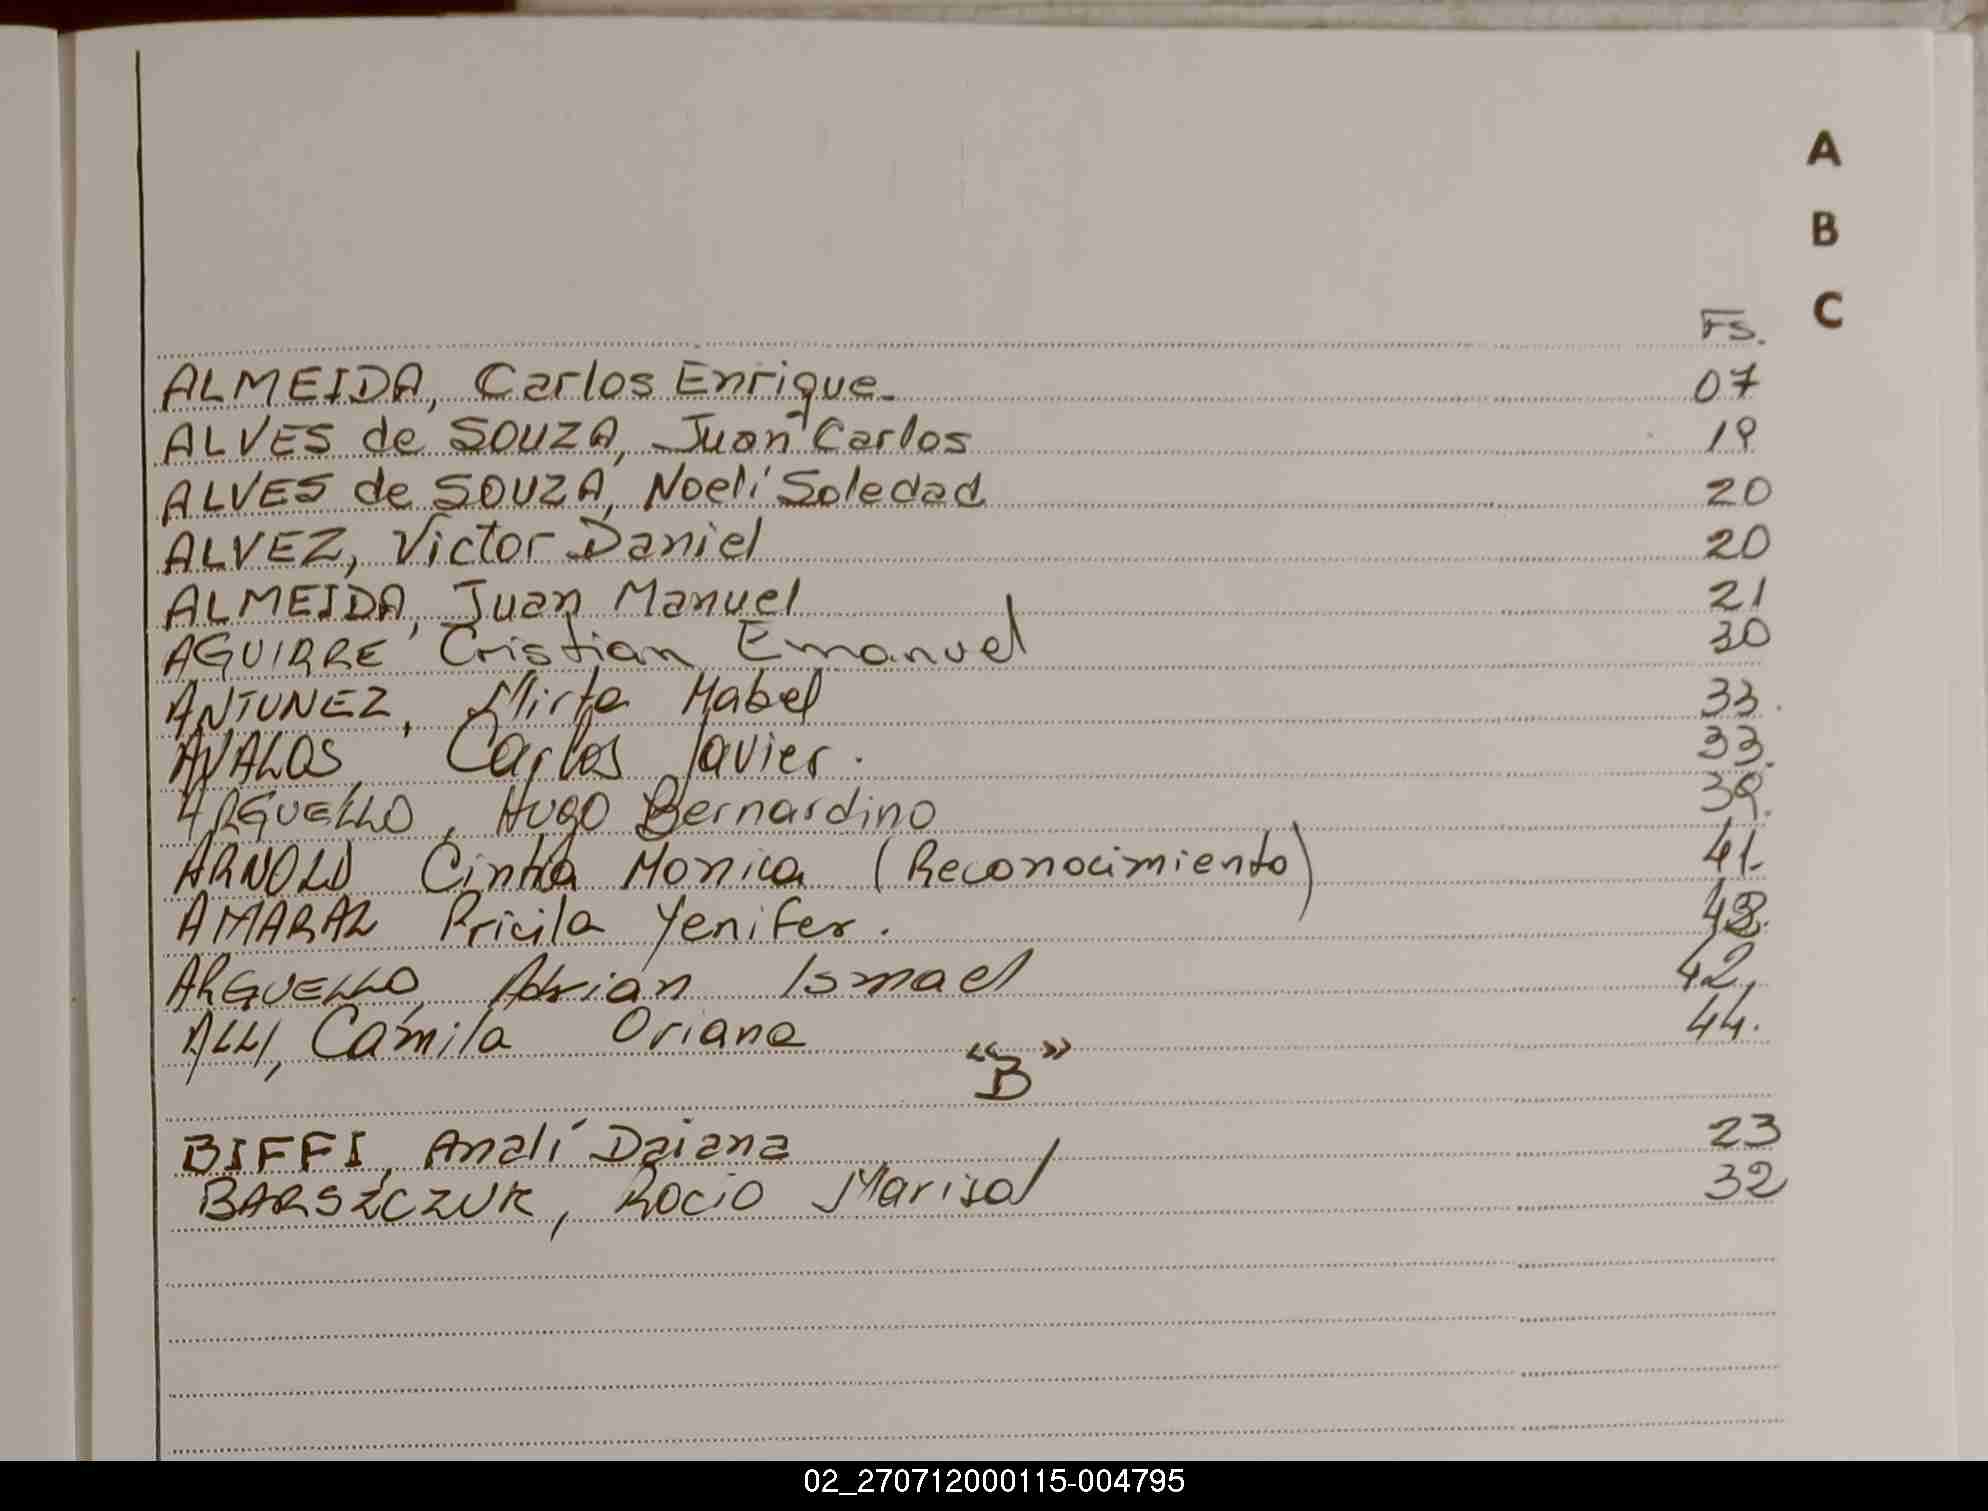 A
B
C
Fs.
ALMEIDA, Carlos Enrique. 07
ALVES de SOUZA, Juan Carlos 19
ALVES de SOUZA, Noelí Soledad 20
ALVEZ, Victor Daniel 20
ALMEIDA, Juan Manuel 21
AGUIRRE Cristian Emanuel 30
ANTUNEZ, Mirta Mabel 33.
AVALOS Carlos Javier. 33.
ARGUELLO, Hugo Bernardino 39.
ARNOLD Cintia Monica (Reconocimiento) 41.
AMARAL Pricila Yenifer.
ARGUELLO, Adrian Ismael 42.
ALLI, Camila Oriana 44.
"B"
BIFFI, Analí Daiana 23
BARSZCZUK, Rocio Marisol 32
02_270712000115-004795